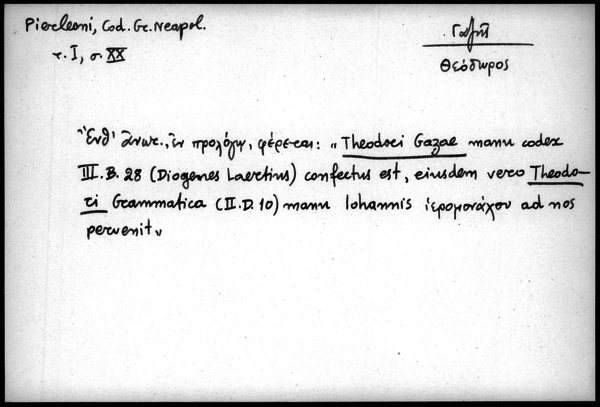 Pierleoni, Cod. Gr. Neapol.
τ. I, σ. XX
Γαζῆς
Θεόδωρος
Ἔνθ' ἄνωτ., ἐν προλόγῳ, φέρεται: „Theodori Gazae manu codex
III. B. 28 (Diogenes Laertius) confectus est, eiusdem vero Theodo-
ri Grammatica (II. D. 10) manu Iohannis ἱερομονάχου ad nos
pervenit„